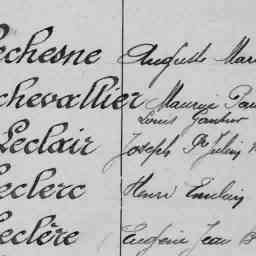 echesne Auguste Mar
chevallier Maurice Pau
Louis
Leclair Joseph
eclerc Henri Emilien
eclère Eugénie Jean B